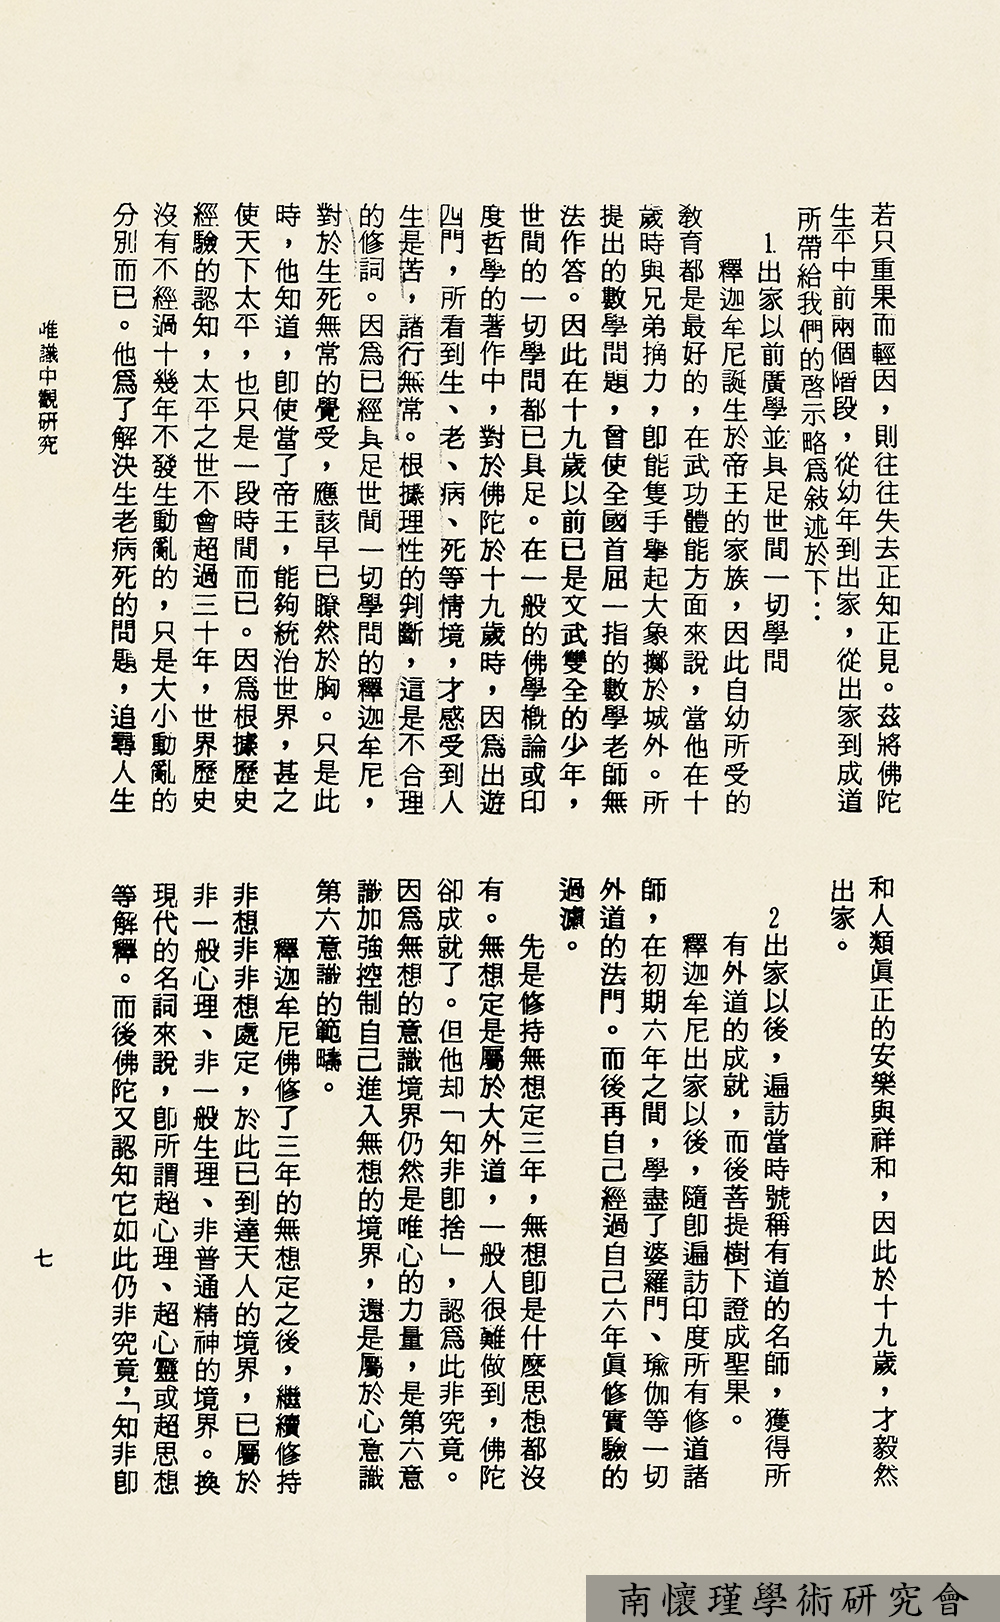 若只重果而輕因，則往往失去正知正見。茲將佛陀
生平中前兩個階段，從幼年到出家，從出家到成道
所帶給我們的啓示略爲敍述於下：
1.出家以前廣學並具足世間一切學問
釋迦牟尼誕生於帝王的家族，因此自幼所受的
敎育都是最好的，在武功體能方面來說，當他在十
歲時與兄弟捔力，卽能隻手擧起大象擲於城外。所
提出的數學問題，曾使全國首屈一指的數學老師無
法作答。因此在十九歲以前已是文武雙全的少年，
世間的一切學問都已具足。在一般的佛學槪論或印
度哲學的著作中，對於佛陀於十九歲時，因爲出遊
四門，所看到生、老、病、死等情境，才感受到人
生是苦，諸行無常。根據理性的判斷，這是不合理
的修詞。因爲已經具足世間一切學問的釋迦牟尼，
對於生死無常的覺受，應該早已瞭然於胸。只是此
時，他知道，卽使當了帝王，能夠統治世界，甚之
使天下太平，也只是一段時間而已。因爲根據歷史
經驗的認知，太平之世不會超過三十年，世界歷史
沒有不經過十幾年不發生動亂的，只是大小動亂的
分別而已。他爲了解決生老病死的問題，追尋人生
和人類眞正的安樂與祥和，因此於十九歲，才毅然
出家。
2出家以後，遍訪當時號稱有道的名師，獲得所
有外道的成就，而後菩提樹下證成聖果。
釋迦牟尼出家以後，隨卽遍訪印度所有修道諸
師，在初期六年之間，學盡了婆羅門、瑜伽等一切
外道的法門。而後再自己經過自己六年眞修實驗的
過濾。
先是修持無想定三年，無想卽是什麼思想都沒
有。無想定是屬於大外道，一般人很難做到，佛陀
卻成就了。但他却「知非卽捨」，認爲此非究竟。
因爲無想的意識境界仍然是唯心的力量，是第六意
識加強控制自己進入無想的境界，還是屬於心意識
第六意識的範疇。
釋迦牟尼佛修了三年的無想定之後，繼續修持
非想非非想處定，於此已到達天人的境界，已屬於
非一般心理、非一般生理、非普通精神的境界。換
現代的名詞來說，卽所謂超心理、超心靈或超思想
等解釋。而後佛陀又認知它如此仍非究竟，「知非卽
唯識中觀研究
七
南懷瑾學術研究會